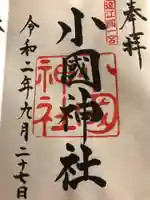 奉拝
遠江國一宮
小國神社
令和二年九月二十七日